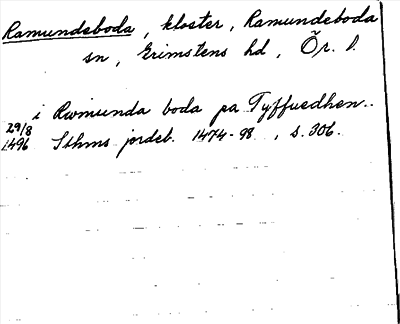 Ramundeboda, kloster, Ramundeboda
sn, Grimstens hd, Ör. l.
i Romunda boda pa Tyffuedhen..
29/8
1496 Sthms jordeb. 1474-98, s. 306.